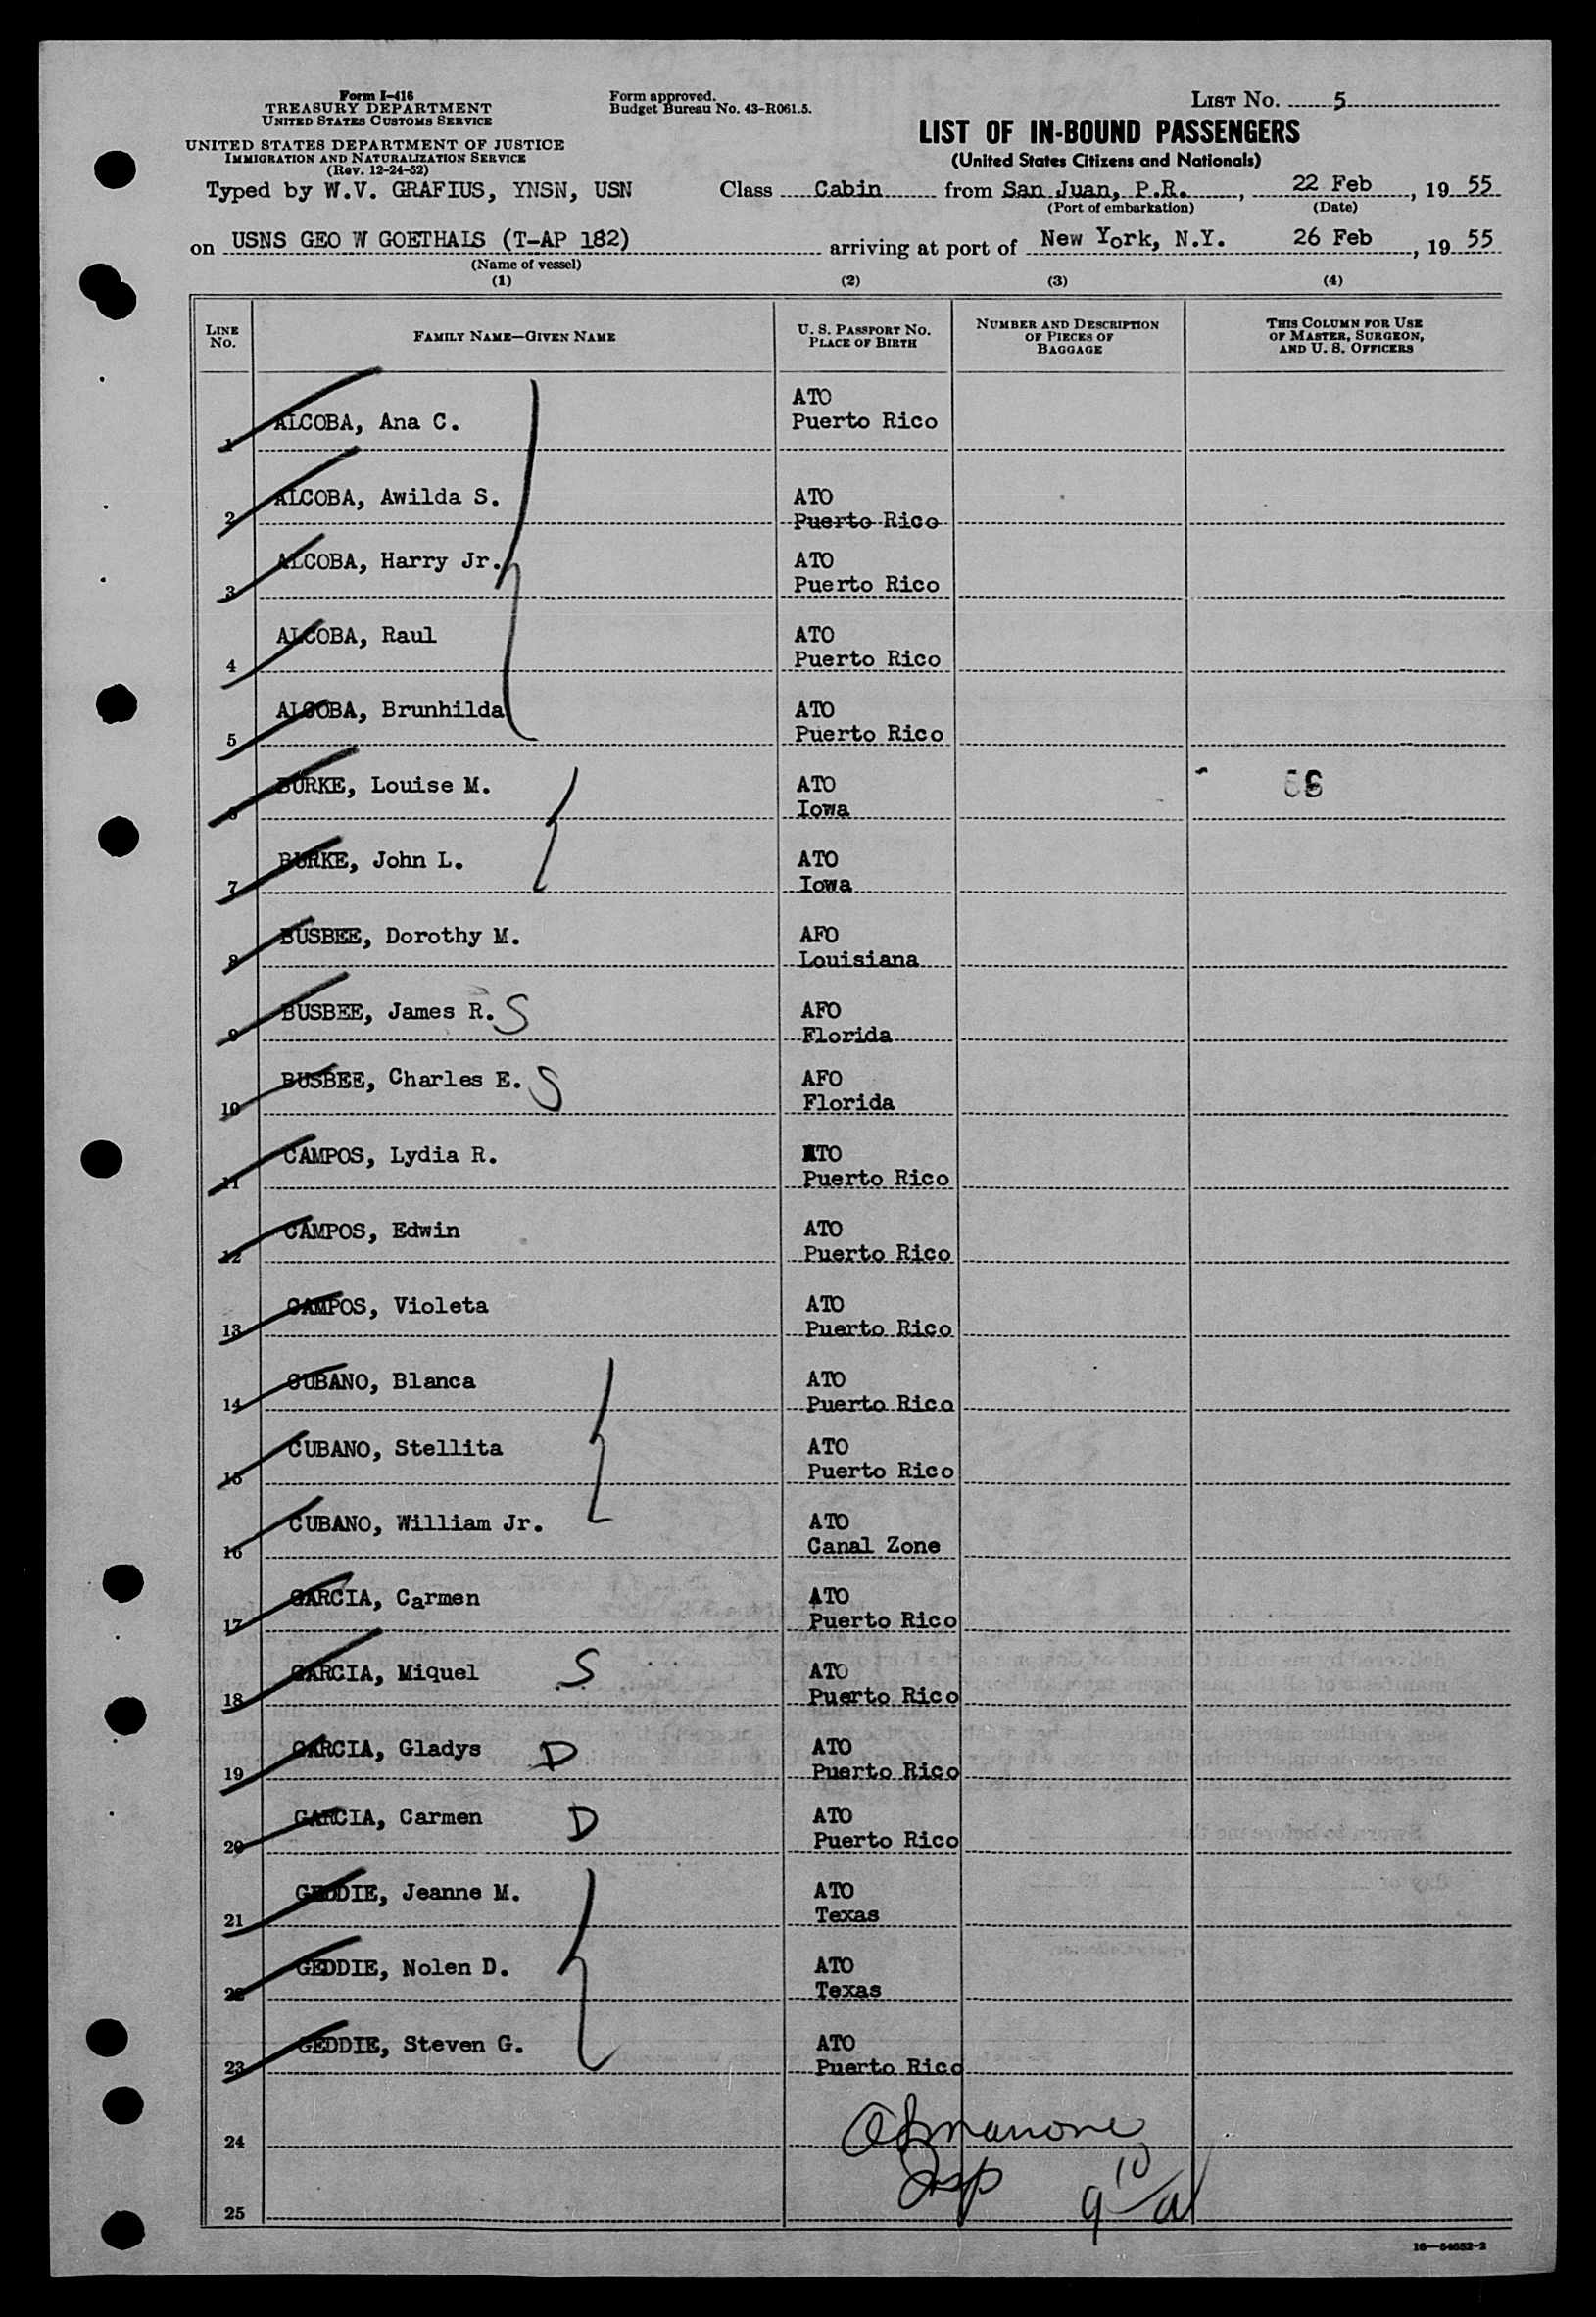 Form I-416
TREASURY DEPARTMENT
UNITED STATES CUSTOMS SERVICE
UNITED STATES DEPARTMENT OF JUSTICE
IMMIGRATION AND NATURALIZATION SERVICE
(Rev. 12-24-52)
Form approved.
Budget Bureau No. 43-R061.5.
LIST No. 5
LIST OF IN-BOUND PASSENGERS
(United States Citizens and Nationals)
Typed by W.V. GRAFIUS, YNSN, USN Class Cabin from San Juan, P.R., 22 Feb, 19 55
(Port of embarkation) (Date)
on USNS GEO W GOETHALS (T-AP 182) arriving at port of New York, N.Y. 26 Feb, 19 55
(Name of vessel)
(1) (2) (3) (4)
LINE No. FAMILY NAME—GIVEN NAME U. S. PASSPORT No. PLACE OF BIRTH NUMBER AND DESCRIPTION OF PIECES OF BAGGAGE THIS COLUMN FOR USE OF MASTER, SURGEON, AND U. S. OFFICERS
1 ALCOBA, Ana C. ATO
Puerto Rico
2 ALCOBA, Awilda S. ATO
Puerto Rico
3 ALCOBA, Harry Jr. ATO
Puerto Rico
4 ALCOBA, Raul ATO
Puerto Rico
5 ALCOBA, Brunhilda ATO
Puerto Rico
6 BURKE, Louise M. ATO
Iowa
7 BURKE, John L. ATO
Iowa
8 BUSBEE, Dorothy M. AFO
Louisiana
9 BUSBEE, James R. S AFO
Florida
10 BUSBEE, Charles E. S AFO
Florida
11 CAMPOS, Lydia R. ATO
Puerto Rico
12 CAMPOS, Edwin ATO
Puerto Rico
13 CAMPOS, Violeta ATO
Puerto Rico
14 CUBANO, Blanca ATO
Puerto Rico
15 CUBANO, Stellita ATO
Puerto Rico
16 CUBANO, William Jr. ATO
Canal Zone
17 GARCIA, Carmen ATO
Puerto Rico
18 GARCIA, Miquel S ATO
Puerto Rico
19 GARCIA, Gladys D ATO
Puerto Rico
20 GARCIA, Carmen D ATO
Puerto Rico
21 GEDDIE, Jeanne M. ATO
Texas
22 GEDDIE, Nolen D. ATO
Texas
23 GEDDIE, Steven G. ATO
Puerto Rico
24
Insp
25
16—54652-2